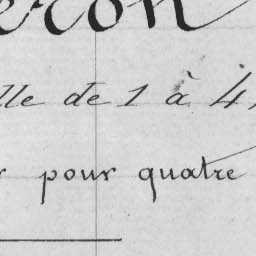 eron
lle de 1 à 4
pour quatre